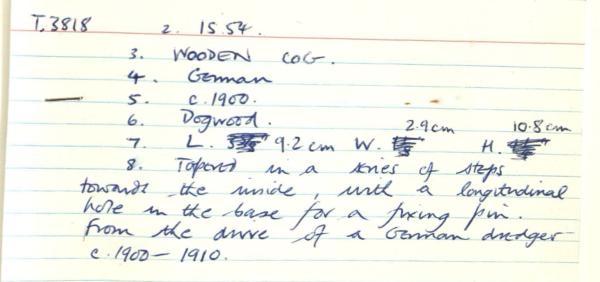 T.3818 2. 15.54.
3. WOODEN COG.
4. German
5. c.1900.
6. Dogwood.
7. L. 9.2 cm W. 2.9cm H. 10.8 cm
8. Tapered in a series of steps
towards the inside, with a longitudinal
hole in the base for a fixing pin.
From the drive of a German dredger
c.1900 - 1910.